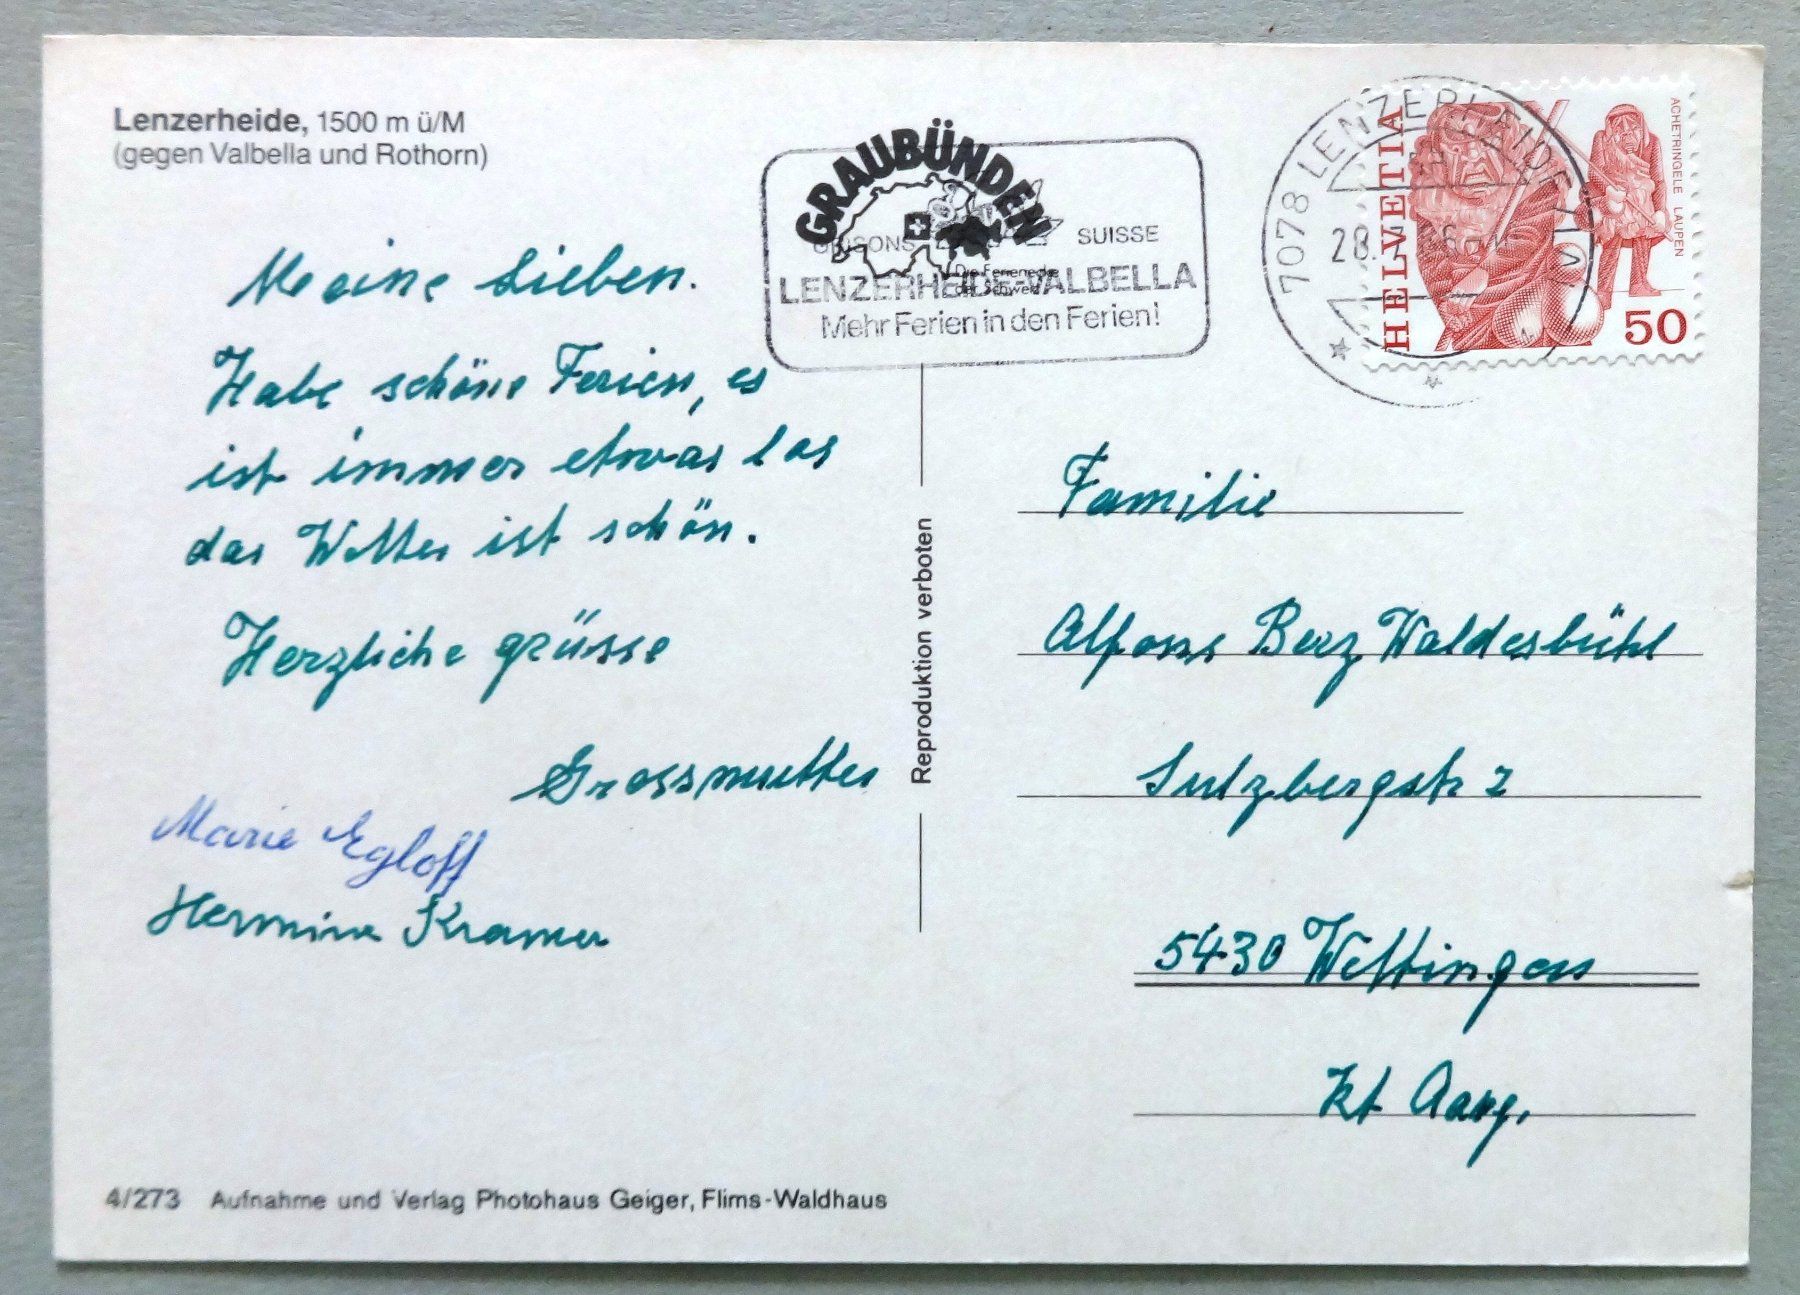 Lenzerheide, 1500 m ü/M
(gegen Valbella und Rothorn)
Meine Lieben.
Habe schöne Ferien, es
ist immer etwas los
das Wetter ist schön.
Herzliche grüsse
Grossmutter
Marie Egloff
Hermine Kramer
4/273 Aufnahme und Verlag Photohaus Geiger, Flims-Waldhaus
Reproduktion verboten
GRAUBÜNDEN
GRISONS SUISSE
Die Ferienecke
der Schweiz
LENZERHEIDE-VALBELLA
Mehr Ferien in den Ferien!
7078 LENZERHEIDE
28.
HELVETIA
ACHETRINGELE LAUPEN
50
Familie
Alfons Berz Waldesbühl
Sulzbergstr 2
5430 Wettingen
Kt Aarg.